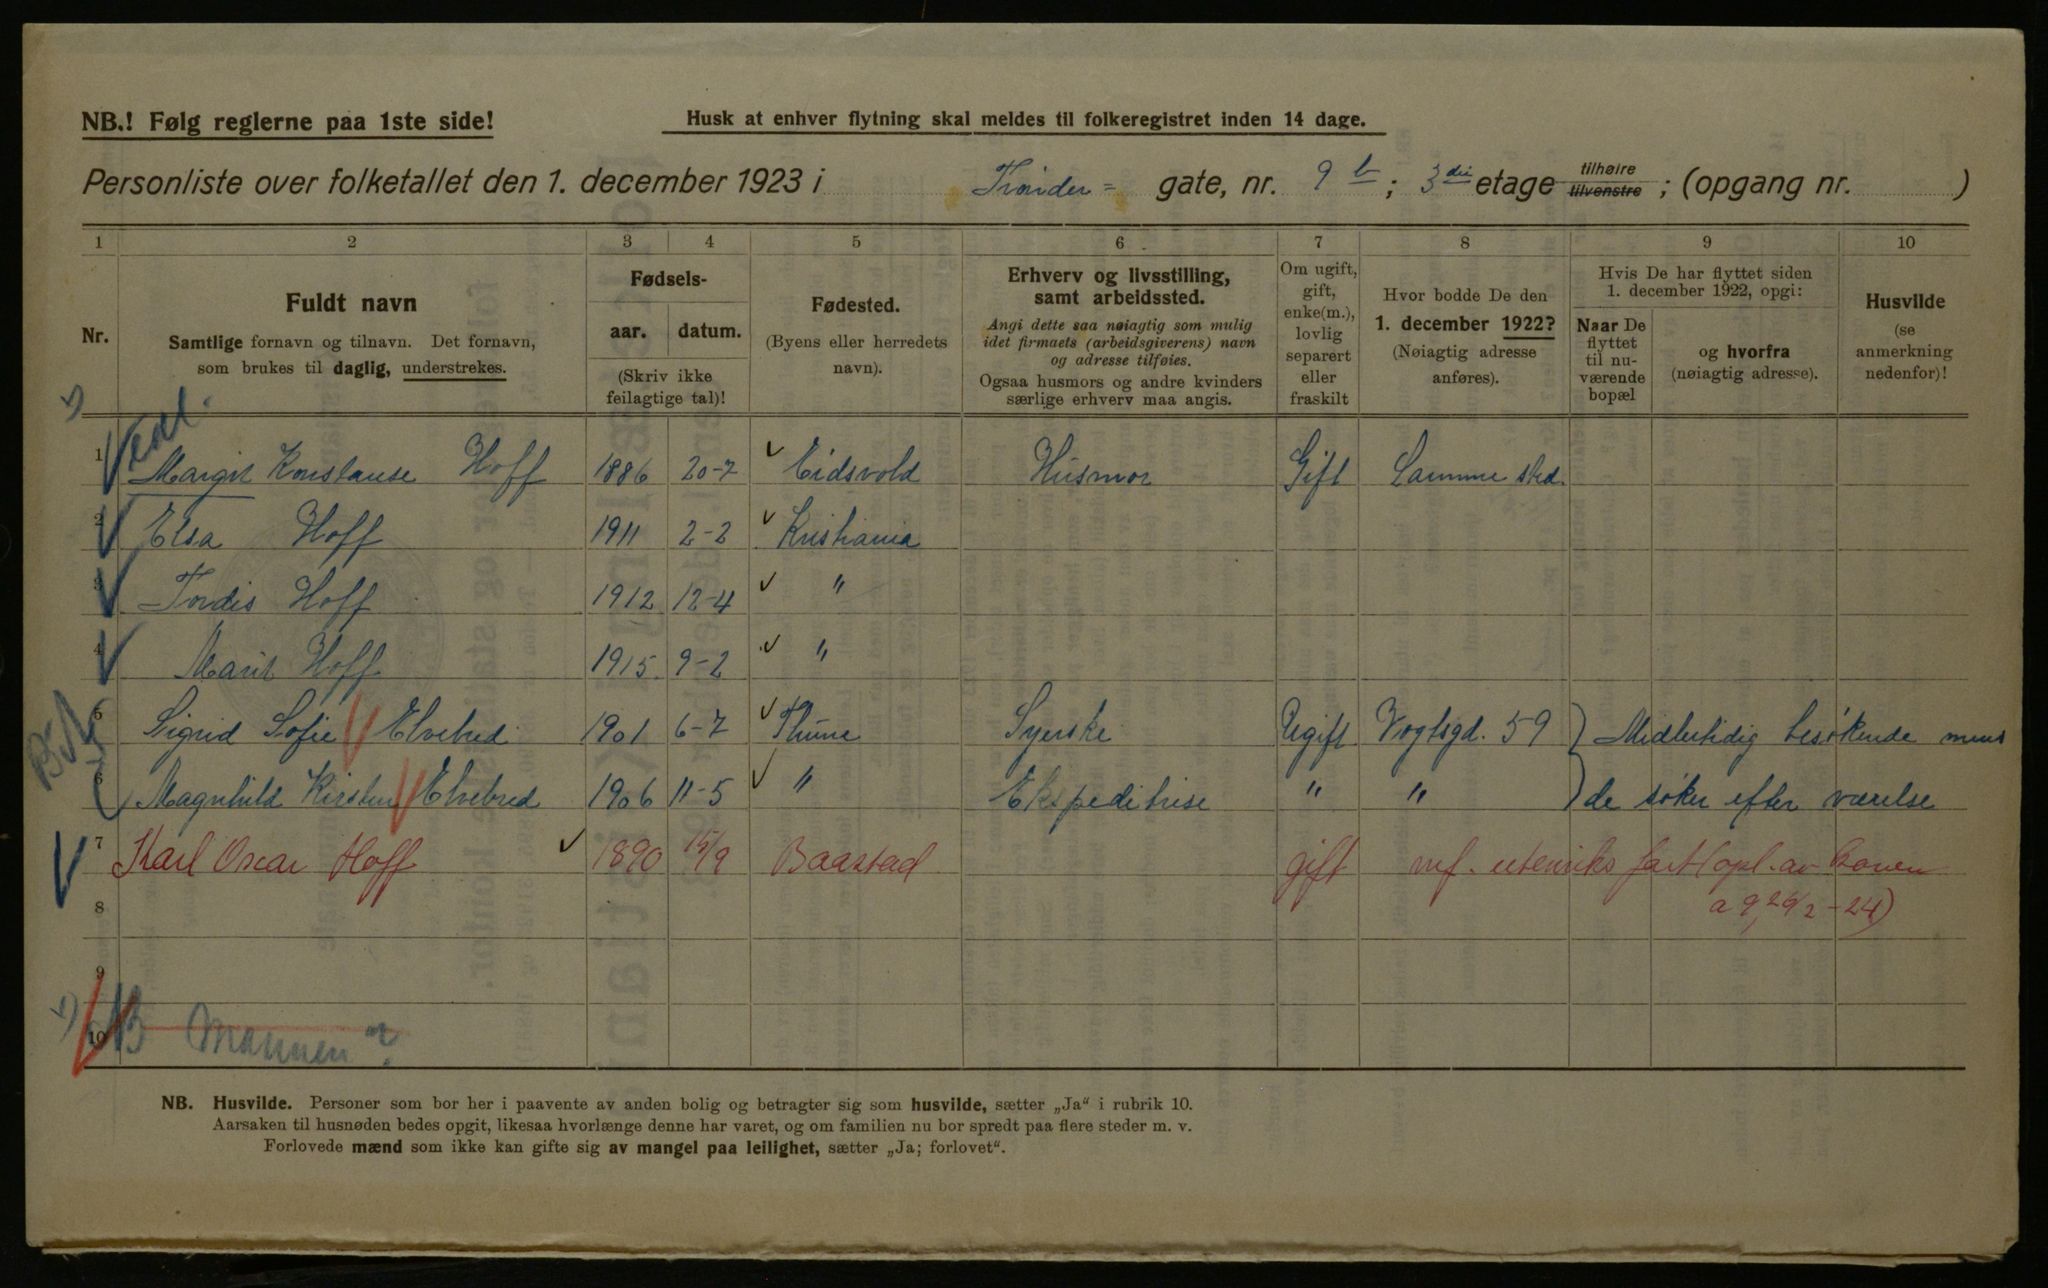 NB.! Følg reglerne paa 1ste side!
Husk at enhver flytning skal meldes til folkeregistret inden 14 dage.
Personliste over folketallet den 1. december 1923 i Tronder= gate, nr. 9 b ; 3die etage tilhøire tilvenstre ; (opgang nr. )
1 2 3 4 5 6 7 8 9 10
Nr.
Fuldt navn
Samtlige fornavn og tilnavn. Det fornavn,
som brukes til daglig, understrekes.
Fødsels-
aar. datum.
(Skriv ikke
feilagtige tal)!
Fødested.
(Byens eller herredets
navn).
Erhverv og livsstilling,
samt arbeidssted.
Angi dette saa nøiagtig som mulig
idet firmaets (arbeidsgiverens) navn
og adresse tilføies.
Ogsaa husmors og andre kvinders
særlige erhverv maa angis.
Om ugift,
gift,
enke(m.),
lovlig
separert
eller
fraskilt
Hvor bodde De den
1. december 1922?
(Nøiagtig adresse
anføres).
Hvis De har flyttet siden
1. december 1922, opgi:
Naar De
flyttet
til nu-
værende
bopæl
og hvorfra
(nøiagtig adresse).
Husvilde
(se
anmerkning
nedenfor)!
1 Margit Konstanse Hoff 1886 20-7 Eidsvold Husmor Gift Samme sted.
2 Elsa Hoff 1911 2-2 Kristiania
3 Tordis Hoff 1912 12-4 "
4 Marit Hoff 1915 9-2 "
5 Sigrid Sofie Elvebred 1901 6-7 Thune Syerske Ugift Vogtsgd. 59 } Midlertidig besøkende mens
6 Magnhild Kirsten Elvebred 1906 11-5 " Ekspeditrise " " } de søker efter værelse
7 Karl Oscar Hoff 1890 15/9 Baastad gift utenriks fart (opl. av konen
8 a 9, 26/2 - 24)
9
10 NB Mannen?
NB. Husvilde. Personer som bor her i paavente av anden bolig og betragter sig som husvilde, sætter „Ja" i rubrik 10.
Aarsaken til husnøden bedes opgit, likesaa hvorlænge denne har varet, og om familien nu bor spredt paa flere steder m. v.
Forlovede mænd som ikke kan gifte sig av mangel paa leilighet, sætter „Ja; forlovet".